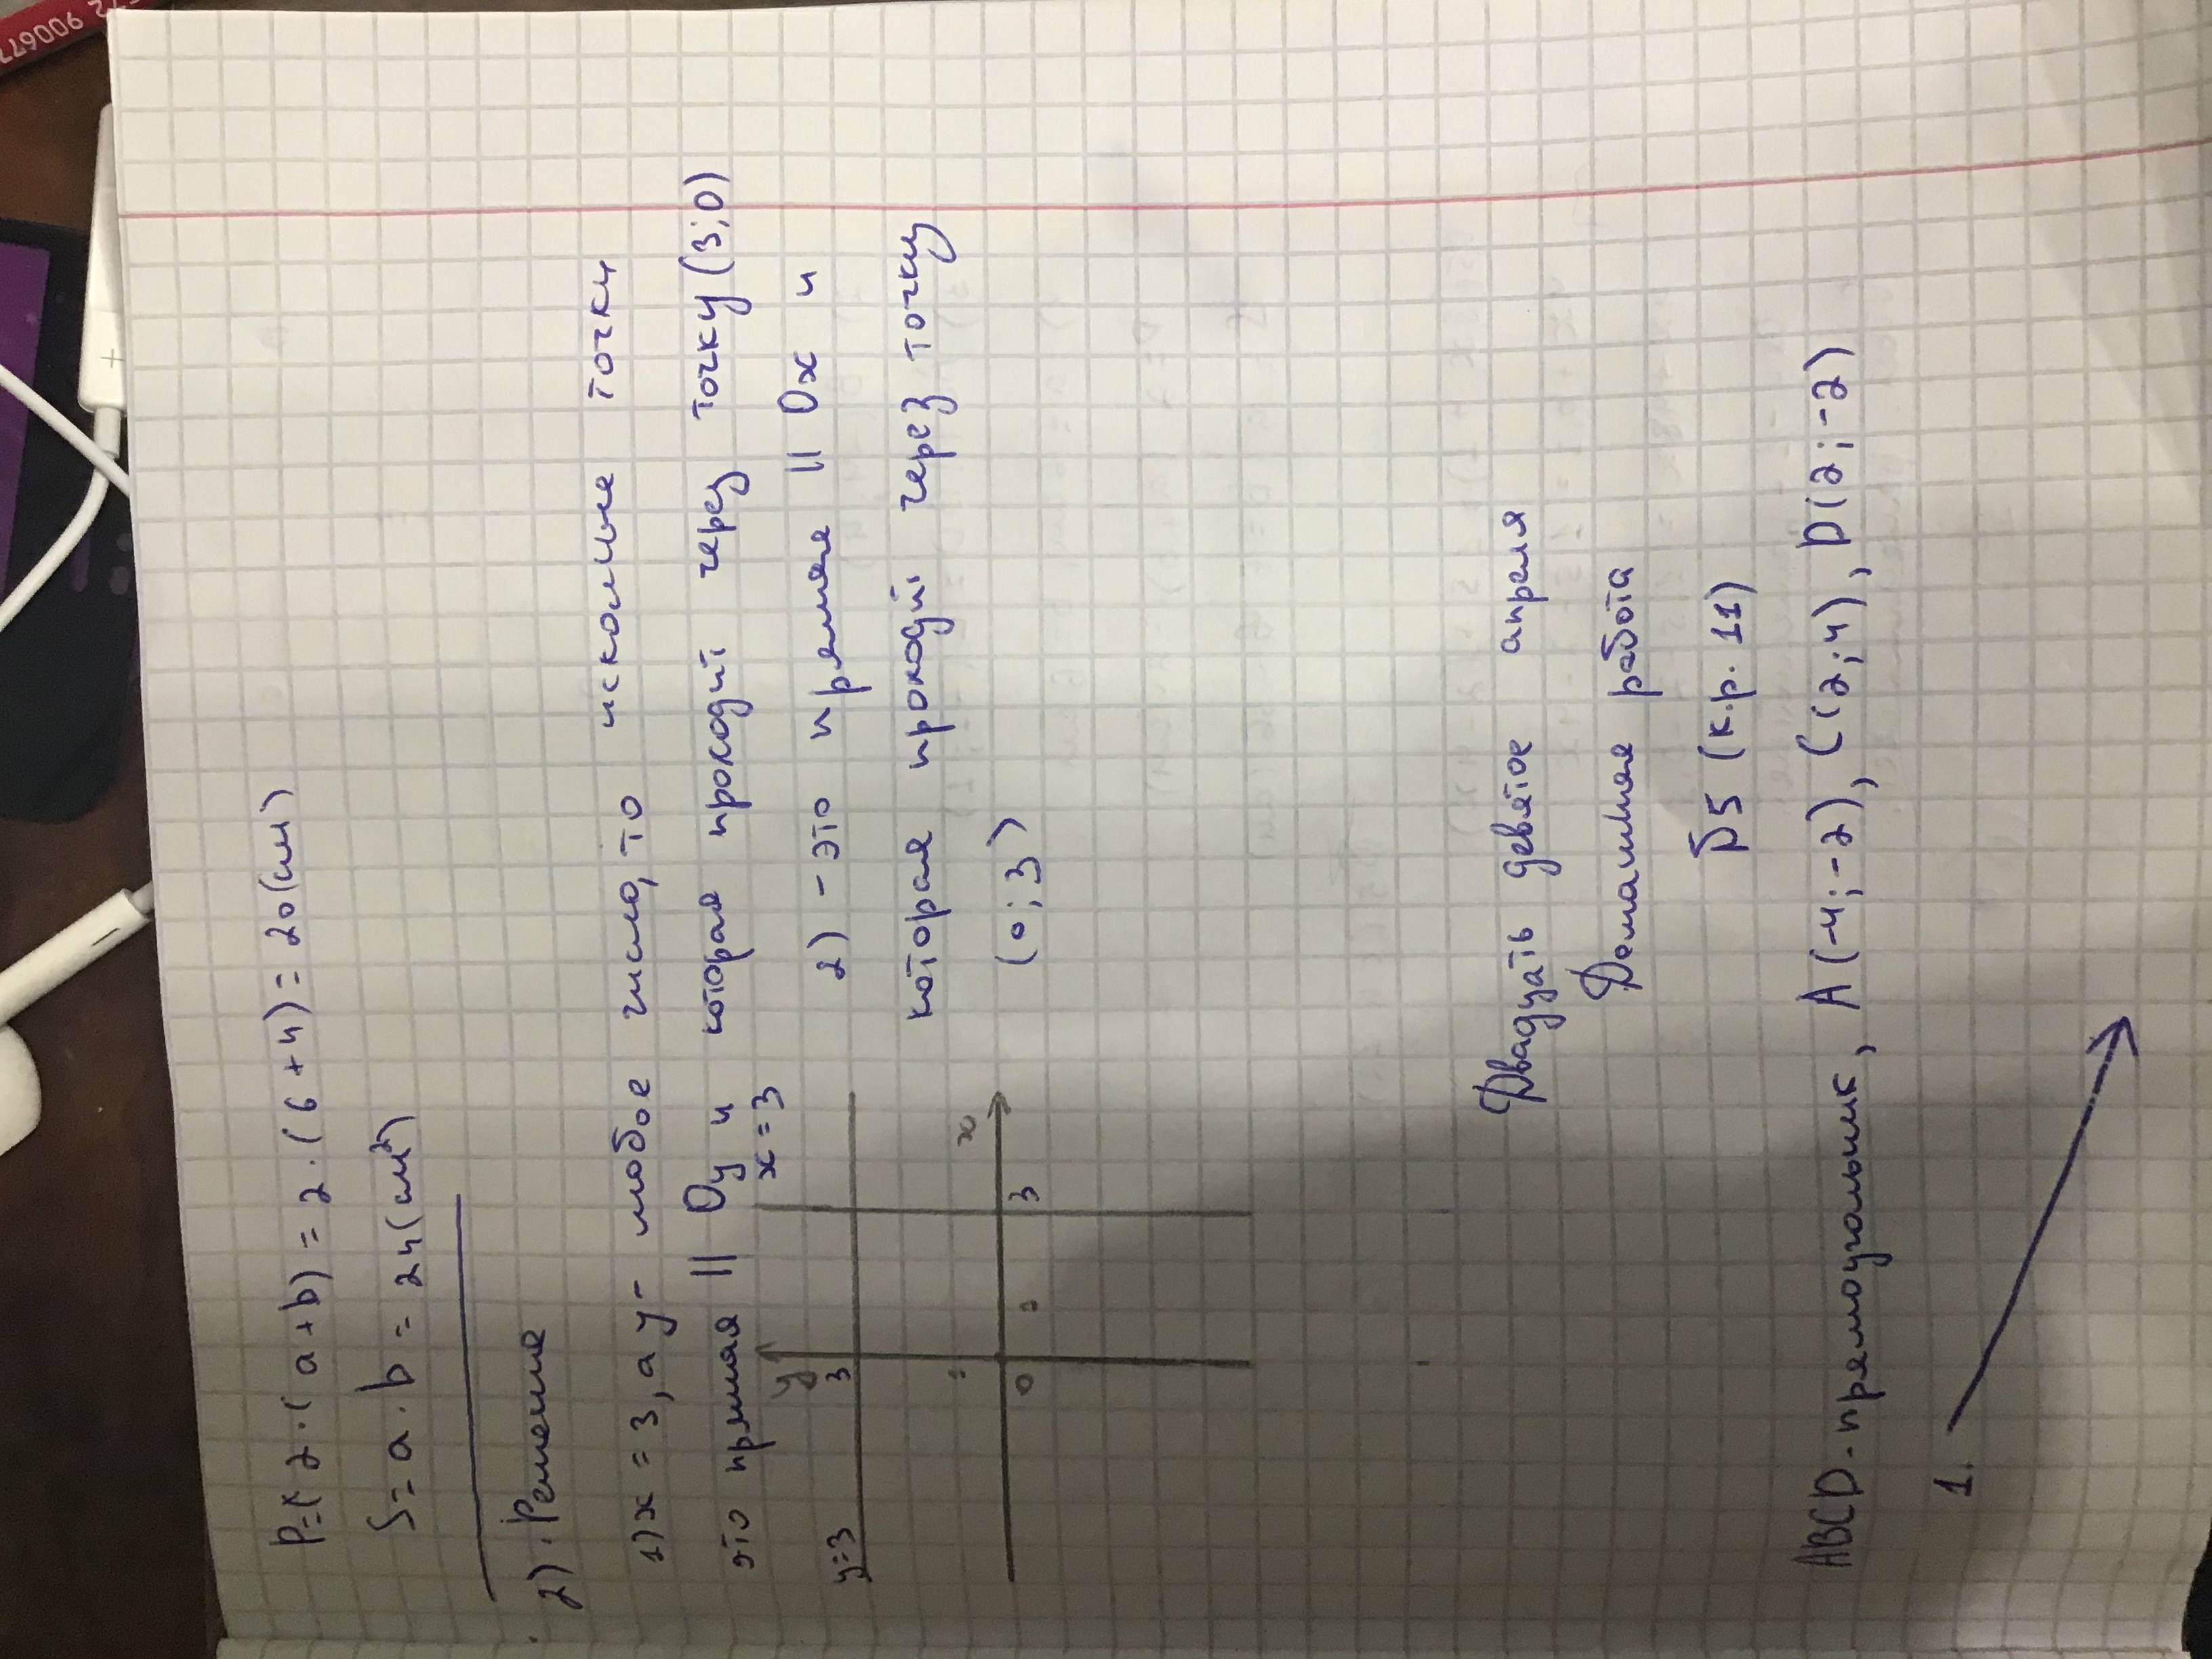 P=(2·(a+b)=2·(6+4)=20(см)
S=a·b=24(см²)
2).Решение
1)x=3, а y- любое число, то искомые точки
это прямая || Oy и которая проходит через точку (3;0)
x=3
2) - это прямая || Ox и
которая проходит через точку
(0;3)
y
3
y=3
x
0
3
Двадцать девятое апреля
Домашняя работа
П5 (к.р. 11)
ABCD-прямоугольник, A(-4;-2), C(2;4), D(2;-2)
1.
9006772